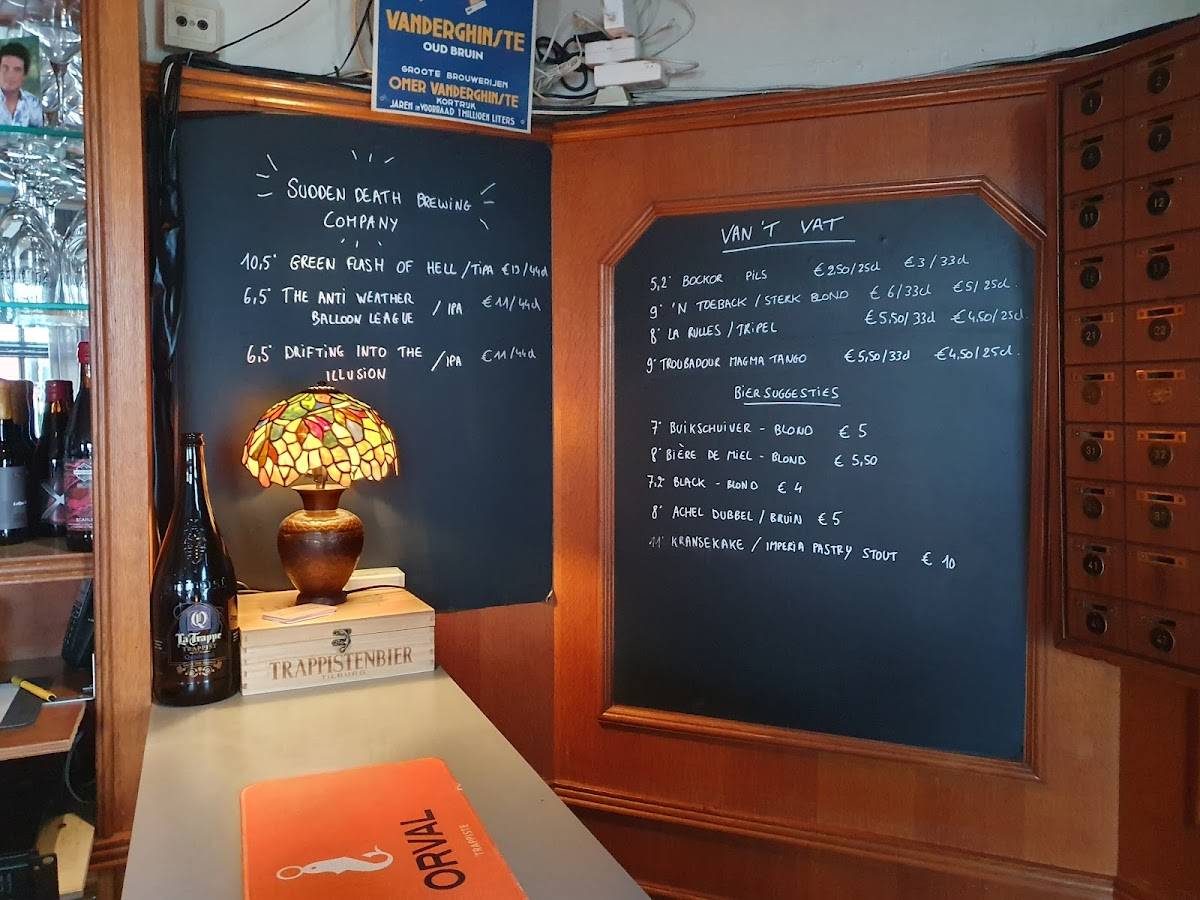 VANDERGHINSTE
OUD BRUIN
GROOTE BROUWERIJEN
OMER VANDERGHINSTE
KORTRIJK
JAREN in VOORRAAD 1 MILLIOEN LITERS
SUDDEN DEATH BREWING
COMPANY
10,5° GREEN FLASH OF HELL / TIPA €13/44cl
6,5° THE ANTI WEATHER / IPA €11/44cl
BALLOON LEAGUE
6,5° DRIFTING INTO THE / IPA €11/44cl
ILLUSION
VAN 'T VAT
5,2° BOCKOR PILS €2.50/25cl €3/33cl
9° 'N TOEBACK / STERK BLOND € 6/33cl €5/25cl.
8° LA RULLES / TRIPEL €5,50/33cl €4,50/25cl.
9° TROUBADOUR MAGMA TANGO €5,50/33cl €4,50/25cl.
BIERSUGGESTIES
7° BUIKSCHUIVER - BLOND € 5
8° BIÈRE DE MIEL - BLOND € 5,50
7,2° BLACK - BLOND € 4
8° ACHEL DUBBEL / BRUIN €5
11° KRANSEKAKE / IMPERIA PASTRY STOUT € 10
La Trappe
TRAPPIST
TRAPPISTENBIER
TILBURG
ORVAL
TRAPPISTE
11
12
21
22
31
32
41